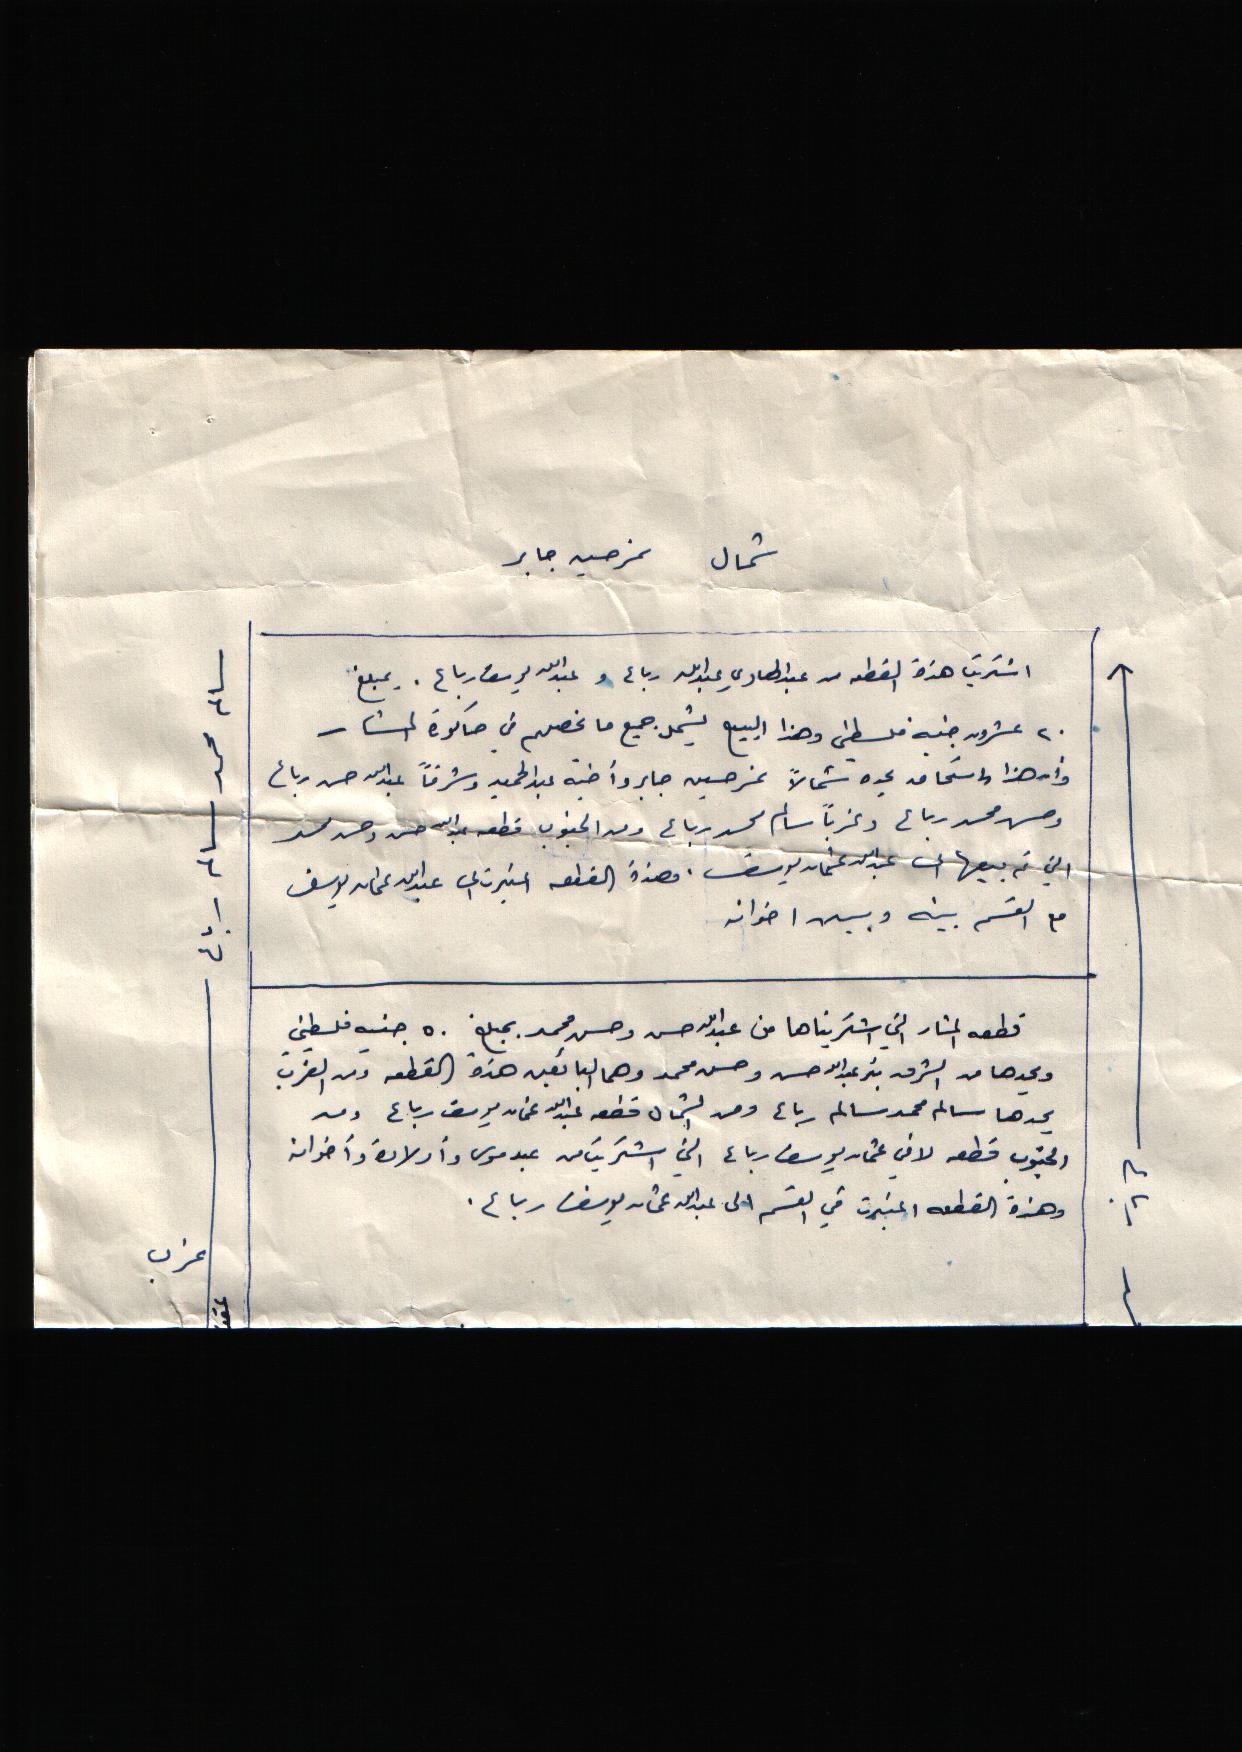 شمال نمر حسين جابر
اشتريت هذة القطعه من عبدالهادي عبدالله رباع و عبدالله يوسف رباع . بمبلغ
٢٠ عشرون جنيه فلسطيني وهذا البيع يشمل جميع ما يخصهم في حاكورة المشار
وأن هذا يحده شمالاً نمر حسين جابر وأخيه عبدالحميد وشرقاً عبدالله حسن رباع
وحسن محمد رباع وغرباً سالم محمد رباع ومن الجنوب قطعه عبدالله حسن وحسن محمد
التي تم بيعها الى عبدالله عثمان يوسف . وهذة القطعه اعتبرت الى عبدالله عثمان يوسف
مع القسم بينه وبين اخوانه
قطعه المشار التي اشتريناها من عبدالله حسن وحسن محمد بمبلغ ٥٠ جنيه فلسطيني
ويحدها من الشرق عبدالله حسن وحسن محمد وهما البائعين هذة القطعه ومن الغرب
يحدها سالم محمد سالم رباع ومن الشمال قطعه عبدالله عثمان يوسف رباع ومن
الجنوب قطعه لاني عثمان يوسف رباع التي اشتريت من عبد موسى وأولاده وأخوانه
وهذة القطعه اعتبرت في القسم الى عبدالله عثمان يوسف رباع .
غرب